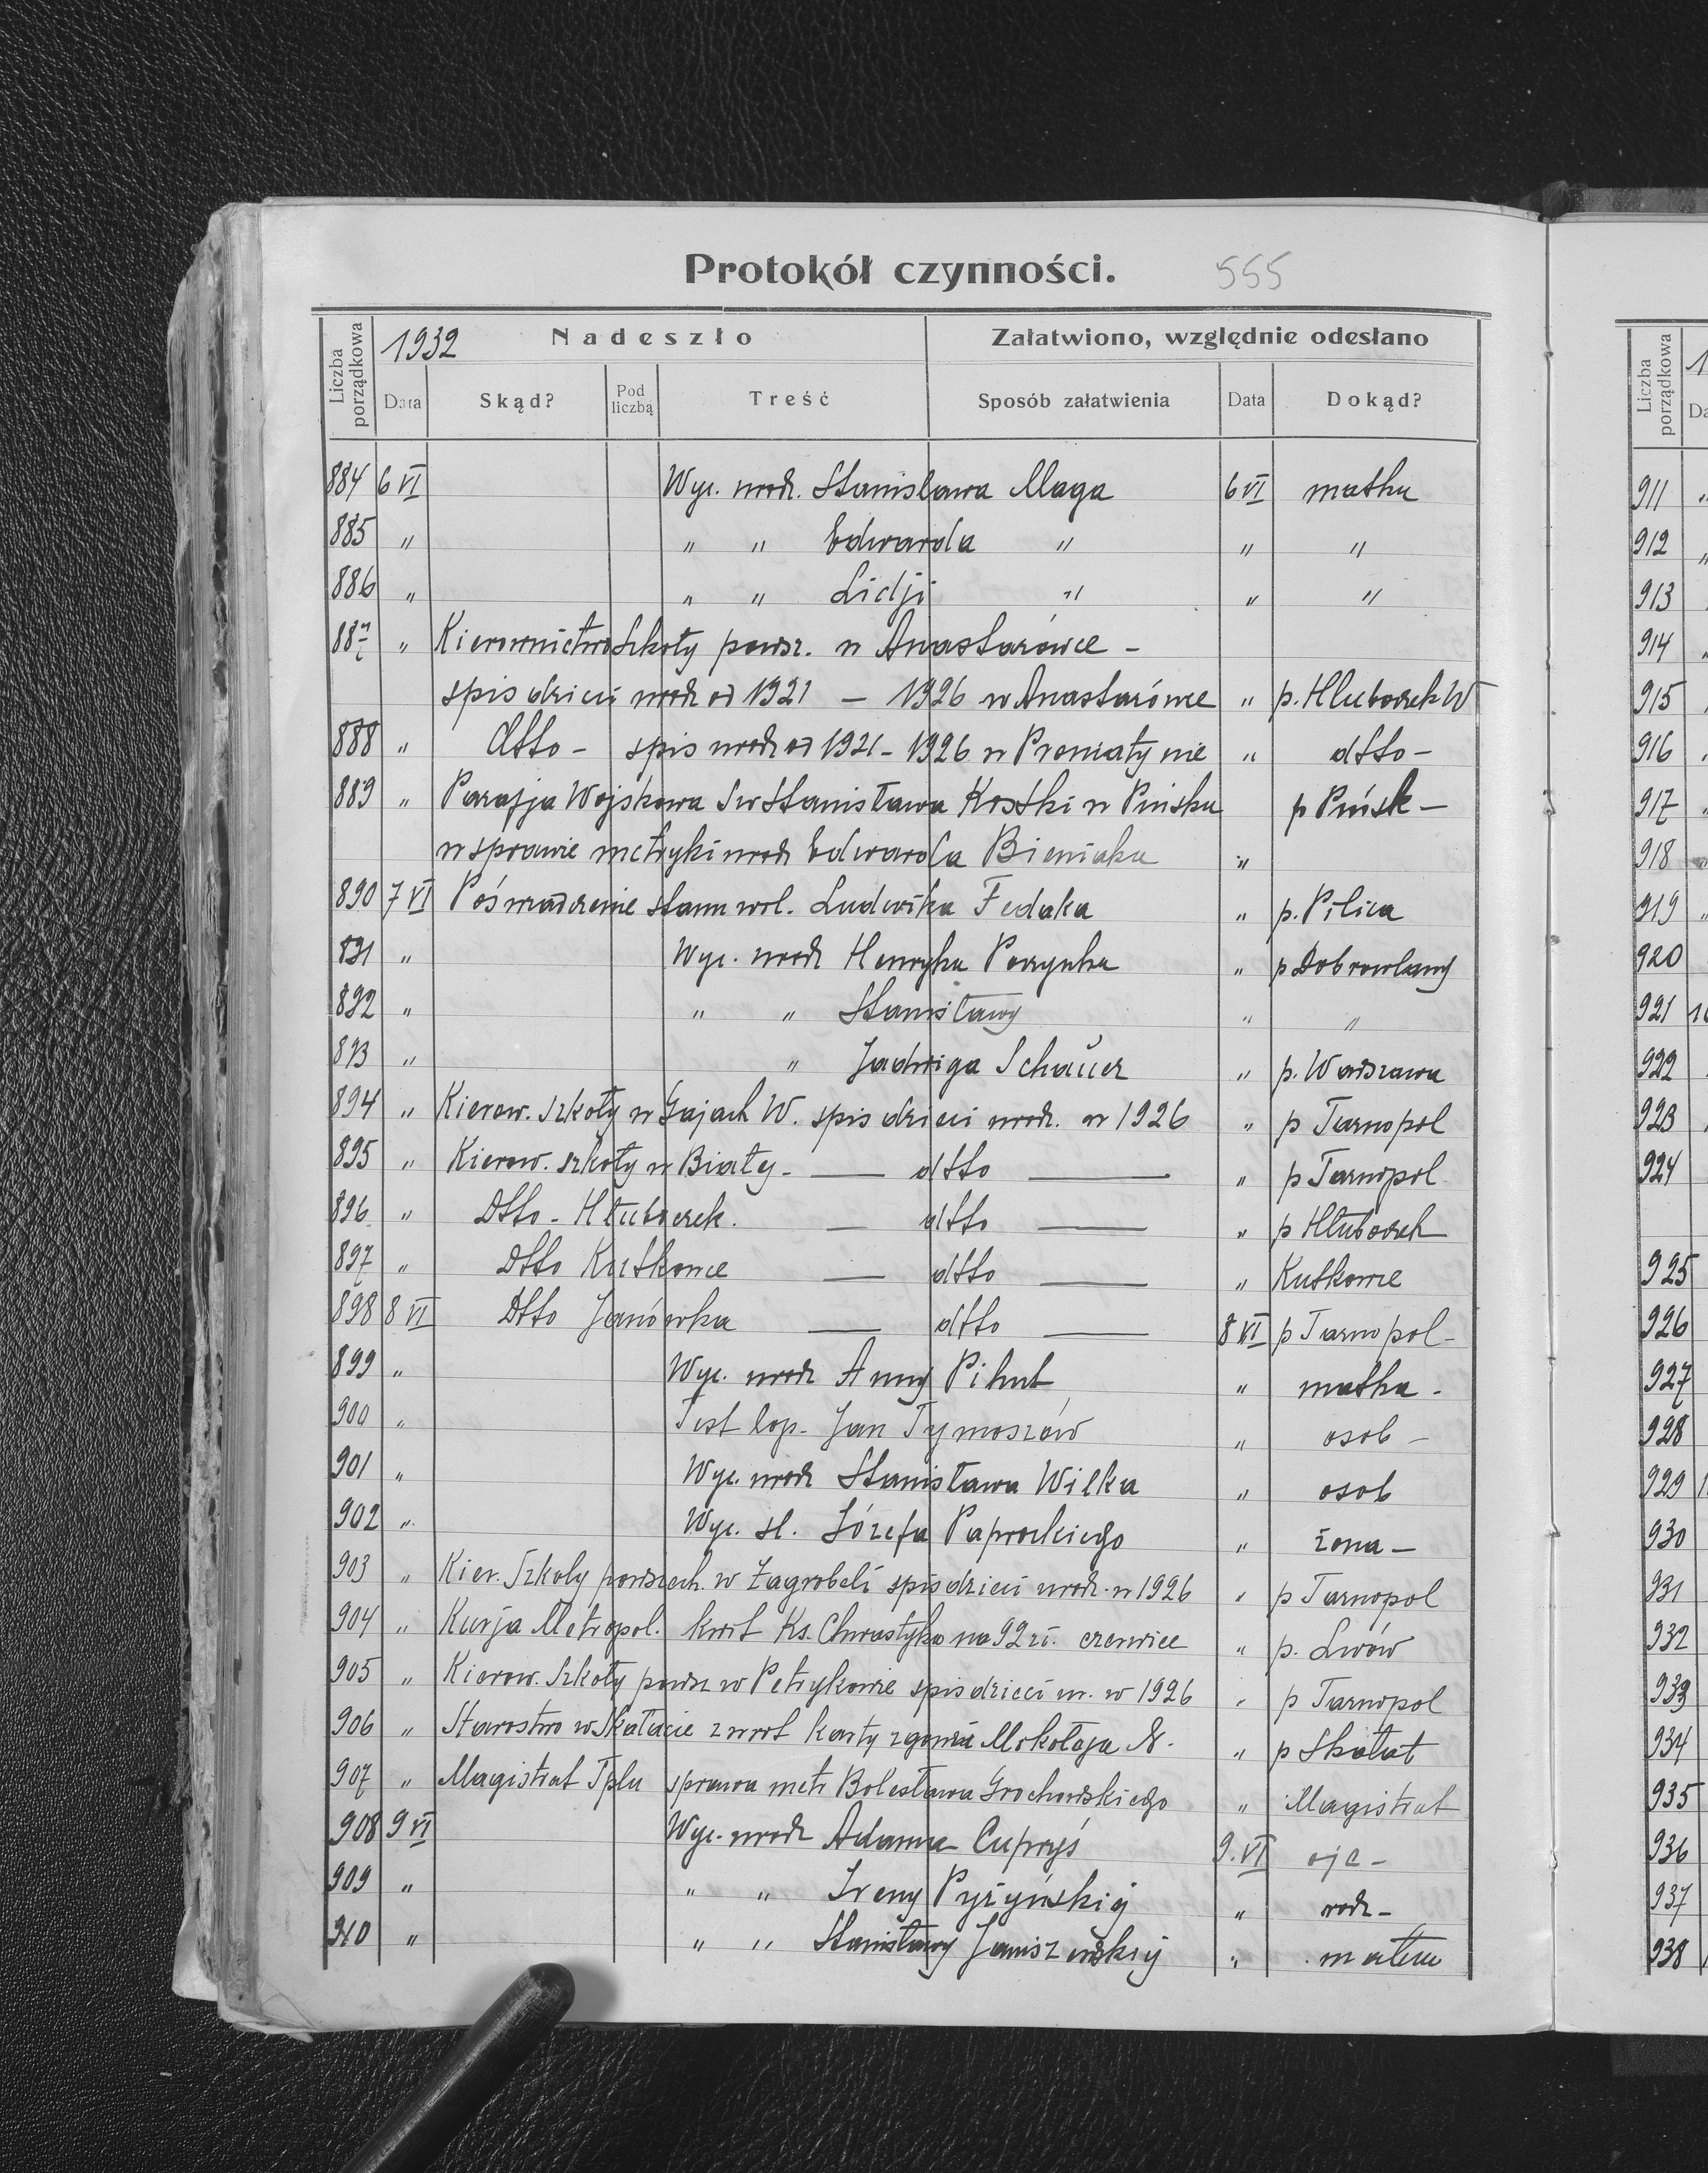 Protokół czynności. 555
Liczba porządkowa 1932 Nadeszło Załatwiono, względnie odesłano
Data Skąd? Pod liczbą Treść Sposób załatwienia Data Dokąd?
884 6 VI Wyc. urodz. Stanisława Maga 6 VI matka
885 " " " Edwarda " " "
886 " " " Lidji " " "
887 " Kierownictwo Szkoły powsz. w Anastazówce -
spis dzieci urodz od 1921 - 1926 w Anastazówce " p. Hłuboczek W
888 " dtto - spis urodz od 1921 - 1926 w Proniatynie " dtto -
889 " Parafja Wojskowa Św Stanisława Kostki w Pińsku p Pińsk -
w sprawie metryki urodz Edwarda Bieniaka "
890 7 VI Poświadczenie stanu wol. Ludwika Fedaka " p. Pilica
891 " Wyc. urodz Henryka " p Dobrowlany
892 " " " Stanisławy " "
893 " " Jadwiga Schauer " p. Warszawa
894 " Kierow. Szkoły w Gajach W. spis dzieci urodz. w 1926 " p Tarnopol
895 " Kierow. szkoły w Białej - — dtto — " p Tarnopol
896 " Dtto - Hłuboczek. — dtto — " p Hłuboczek
897 " Dtto Kutkowce — dtto — " Kutkowce
898 8 VI Dtto Janówka — dtto — 8 VI p Tarnopol -
899 " Wyc. urodz Anny Pihut " matka -
900 " Test kop. Jan Tymoszów " osob -
901 " Wyc. urodz Stanisława Wilka " osob
902 " Wyc. sl. Józefa Paprockiego " żona -
903 " Kier. Szkoły powszech. w Zagrobeli spis dzieci urodz. w 1926 " p Tarnopol
904 " Kurja Metropol. kwit Ks. Chwastyka na 92 zł. czerwiec " p. Lwów
905 " Kierow. Szkoły powsz w Petrykowie spis dzieci ur. w 1926 " p Tarnopol
906 " Starostwo w Skałacie zwrot karty zgonu Mikołaja N. " p Skałat
907 " Magistrat Tplu sprawa metr Bolesława Grochowskiego " Magistrat
908 9 VI Wyc. urodz Adama Cupryś 9. VI ojc -
909 " " " Ireny Pyżyńskiej " rodz -
910 " " " Stanisławy Janiszewskiej "
Liczba porządkowa
911
912
913
914
915
916
917
918
919
920
921
922
923
924
925
926
927
928
929
930
931
932
933
934
935
936
937
938